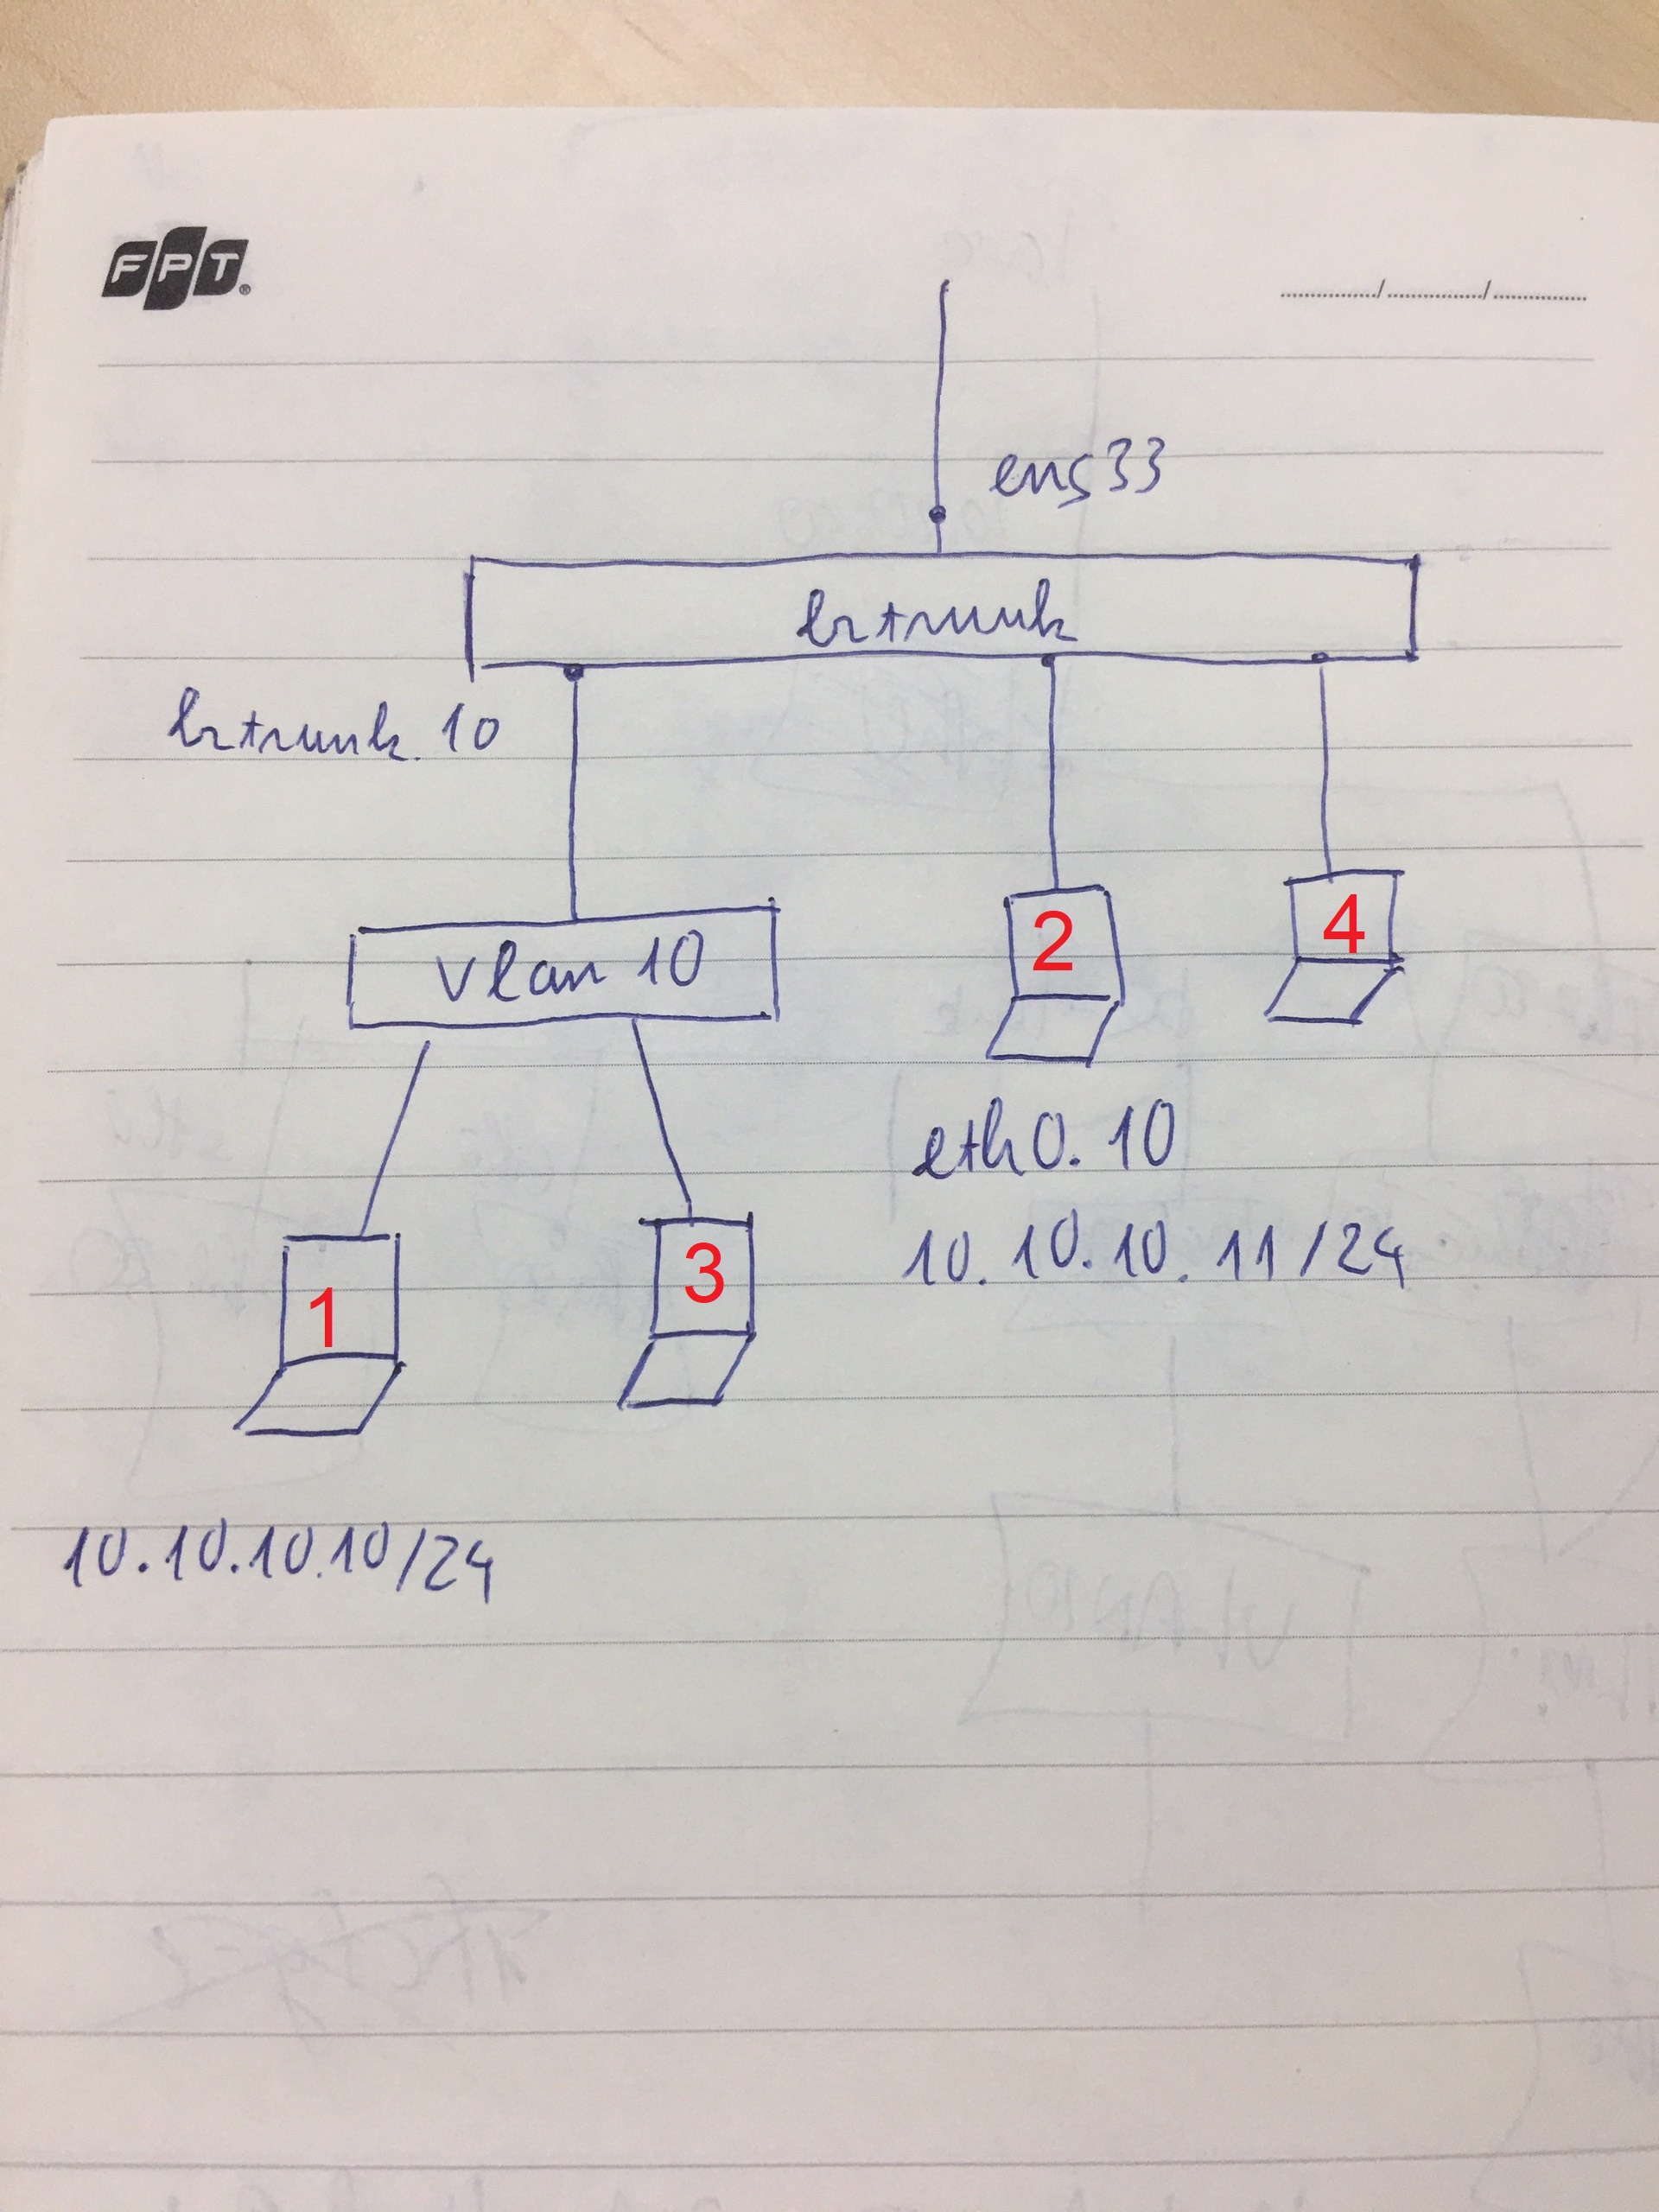 FPT®
............/............/............
ens33
brtrunk
brtrunk.10
2
4
vlan 10
eth0.10
10.10.10.11/24
1
3
10.10.10.10/24